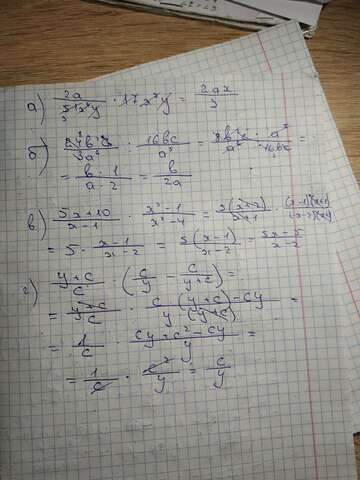 а) 2a / 51x³y · 17x⁴y = 2ax / 3
б) 24b²c / 3a⁶ : 16bc / a⁵ = 8b²c · a⁵ / a⁶ · 16bc =
= b · 1 / a · 2 = b / 2a
в) 5x+10 / x-1 · x²-1 / x²-4 = 5(x+2) / x-1 · (x-1)(x+1) / (x-2)(x+2)
= 5 · x-1 / x-2 = 5(x-1) / x-2 = 5x-5 / x-2
г) y+c / c · (c / y - c / y+c) =
= y+c / c · c · (y+c) - cy / y · (y+c) =
= 1 / c · cy+c²-cy / y =
= 1 / c · c² / y = c / y